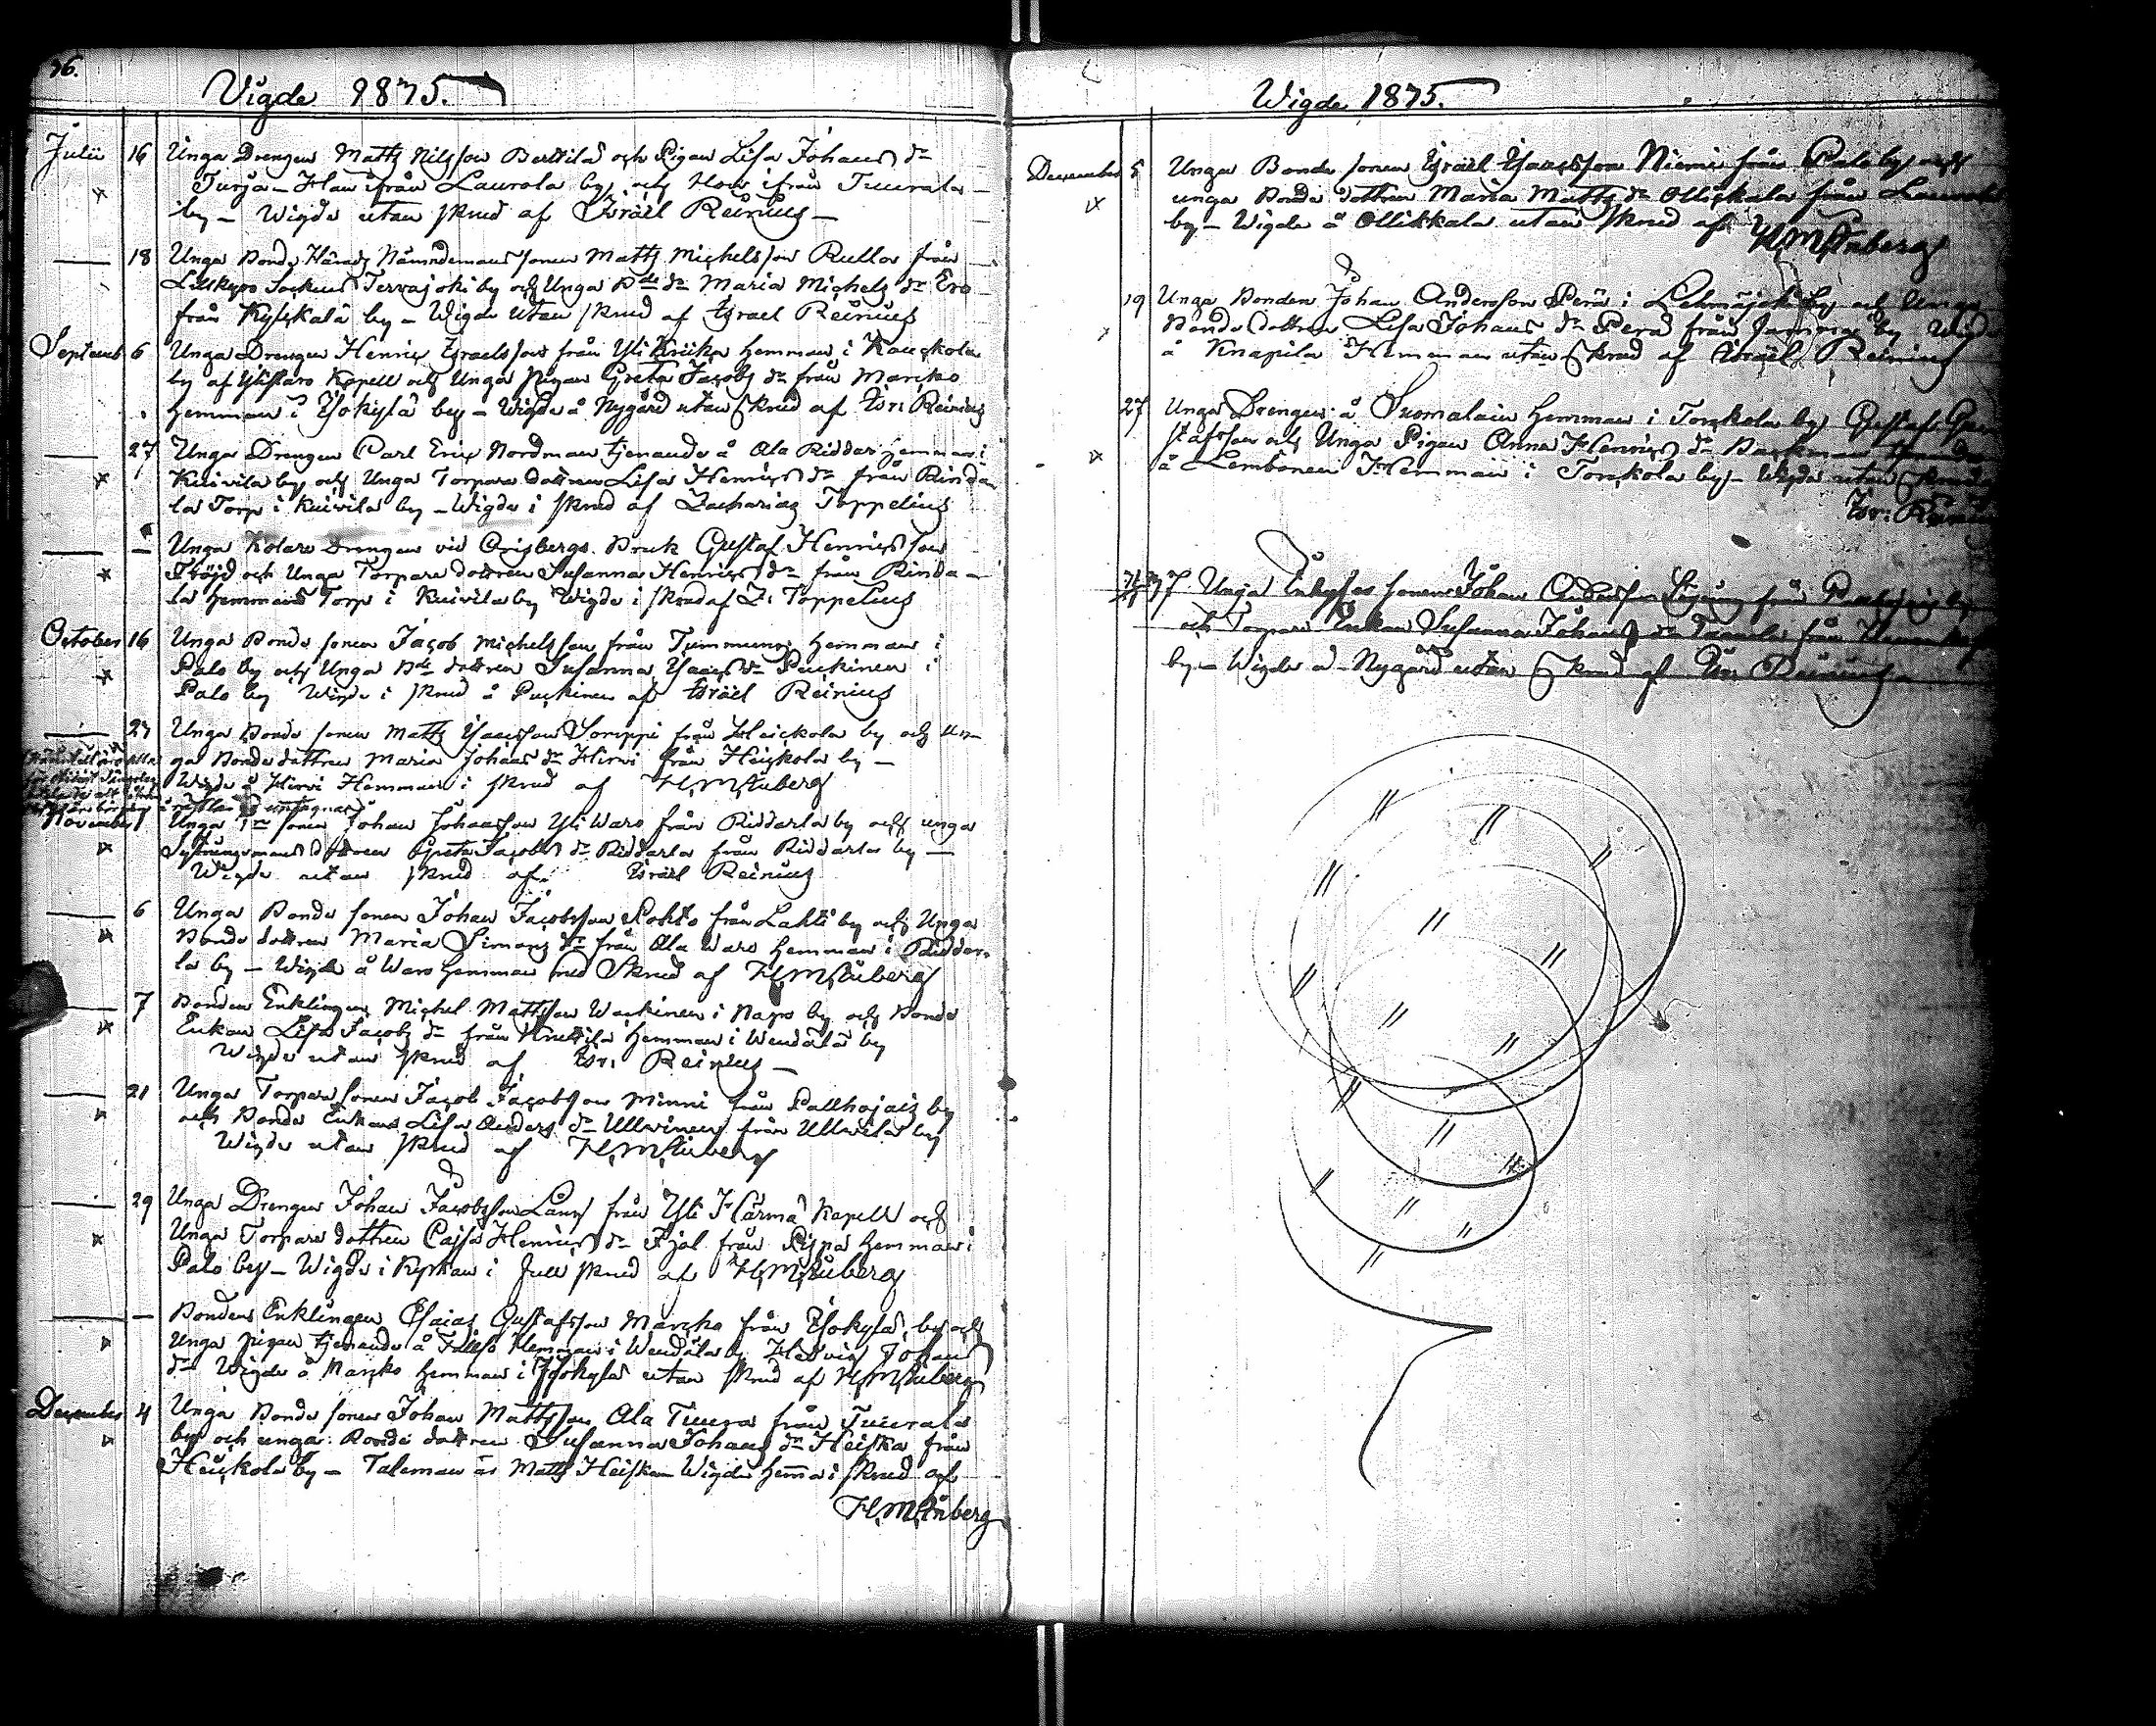 36.
Vigde 1835.
Julii 16 Unga Drengen Matts Nilsson Berttila och Pigan Lisa Johans dr
Turja - Han ifrån Laurola by och Hon ifrån Tuurala
by - Wigde utan skrud af Israël Reinius -
18 Unga Bonde Härads Nämndemans sonen Matts Michelsson Rullas från
Lillkyro Sockens Tervajoki by och Unga Bde dr Maria Michels dr Ero
från Kylkkälä by - Wigde utan skrud af Israel Reinius
Septemb 6 Unga Drengen Henric Israelsson från Yli Kriika hemman i Kauckola
by af Ylistaro Kapell och Unga pigan Greta Jacobs dr från Marcko
hemman i Isokylä by - Wigde å Nygård utan skrud af Isr: Reinius
27 Unga Drengen Carl Eric Nordman tjenande å Ala Riddar hemman i
Kuivila by och Unga Torpare dottren Lisa Henrics dr från Rinda
la Torp i Kuivila by - Wigde i skrud af Zacharias Toppelius
— Unga Kolare Drengen vid Orisbergs Bruk Gustaf Henricsson
Fröjd och Unga Torpare dottren Susanna Henrics dr från Rinda-
la hemmans Torp i Kuivila by Wigde i skrud af Z: Toppelius
October 16 Unga Bonde sonen Jacob Michelsson från Tummunen hemman i
Palo by och Unga Bde dottren Susanna Isacs dr Puckinen i
Palo by Wigde i skrud å Puckinen af Israël Reinius
23 Unga Bonde sonen Matts Isacsson Sorippi från Heickola by och un
ga Bonde dottren Maria Johans dr Hirvi från Heickola by -
Wigde å Hirvi Hemman i skrud af H.M.Stuberg
November 1 Unga sonen Johan Johansson Yli Waro från Riddarla by och unga
Sytningsmans dottren Greta Jacobs dr Riddarla från Riddarla by -
Wigde utan skrud af Israël Reinius
6 Unga Bonde sonen Johan Jacobsson Pohto från Lahti by och Unga
Bonde dottren Maria Simons dr från Ala Waro hemman i Riddar-
la by - Wigde å Waro hemman med Skrud af H.M.Stuberg
7 Bonden Enklingen Michel Mattsson Wackinen i Napo by och Bonde
Enkan Lisa Jacobs dr från Knuttila hemman i Wendälä by
Wigde utan skrud af Isr: Reinius -
21 Unga Torpare sonen Jacob Jacobsson Minni från Pallhojais by
och Bonde Enkan Lisa Anders dr Ullwinen från Ullwila by
Wigde utan skrud af H.M.Stuberg
29 Unga Drengen Johan Jacobsson Lång från Yli Härmä Kapell och
Unga Torpare dottren Caisa Henrics dr Fjäl från hemman i
Palo by - Wigde i Kyrkan i full skrud af H.M.Stuberg
— Bonden Enklingen Esaias Gustafsson Marcko från Isokylä by och
Unga pigan tjenande å hemman i Wendälä by Hedvig Johans
dr Wigde å Marcko hemman i Isokylä utan skrud af H.M.Stuberg
December 4 Unga Bonde sonen Johan Mattsson Ala Tuura från Tuurala
by och unga Bonde dottren Susanna Johans dr Heiska från
Heickola by - Taleman är Matts Heiska Wigde hemma i skrud af
H.M.Stuberg
Wigde 1835.
December 5 Unga Bonde sonen Israël Isacsson Niemi från Palo by och
unga Bonde dottren Maria Matts dr Ollickala från
by - Wigde å Ollikkala utan skrud af H.M.Stuberg
19 Unga Bonden Johan Andersson Perä i Lehmäjoki by och Unga
Bonde dottren Lisa Johans dr Perä från by
å Knapila Hemman utan skrud af Israël Reinius
27 Unga Drengen å Suomalain hemman i Torckola by Gustaf
stafsson och Unga Pigan Anna Henrics dr
å Lembonen Hemman i Torckola by - Wigde utan skrud
Isr: Reinius
Unga sonen Johan Andersson från
och Torpare Enkan Susanna Johans dr från
by - Wigde å Nygård utan skrud af Isr: Reinius